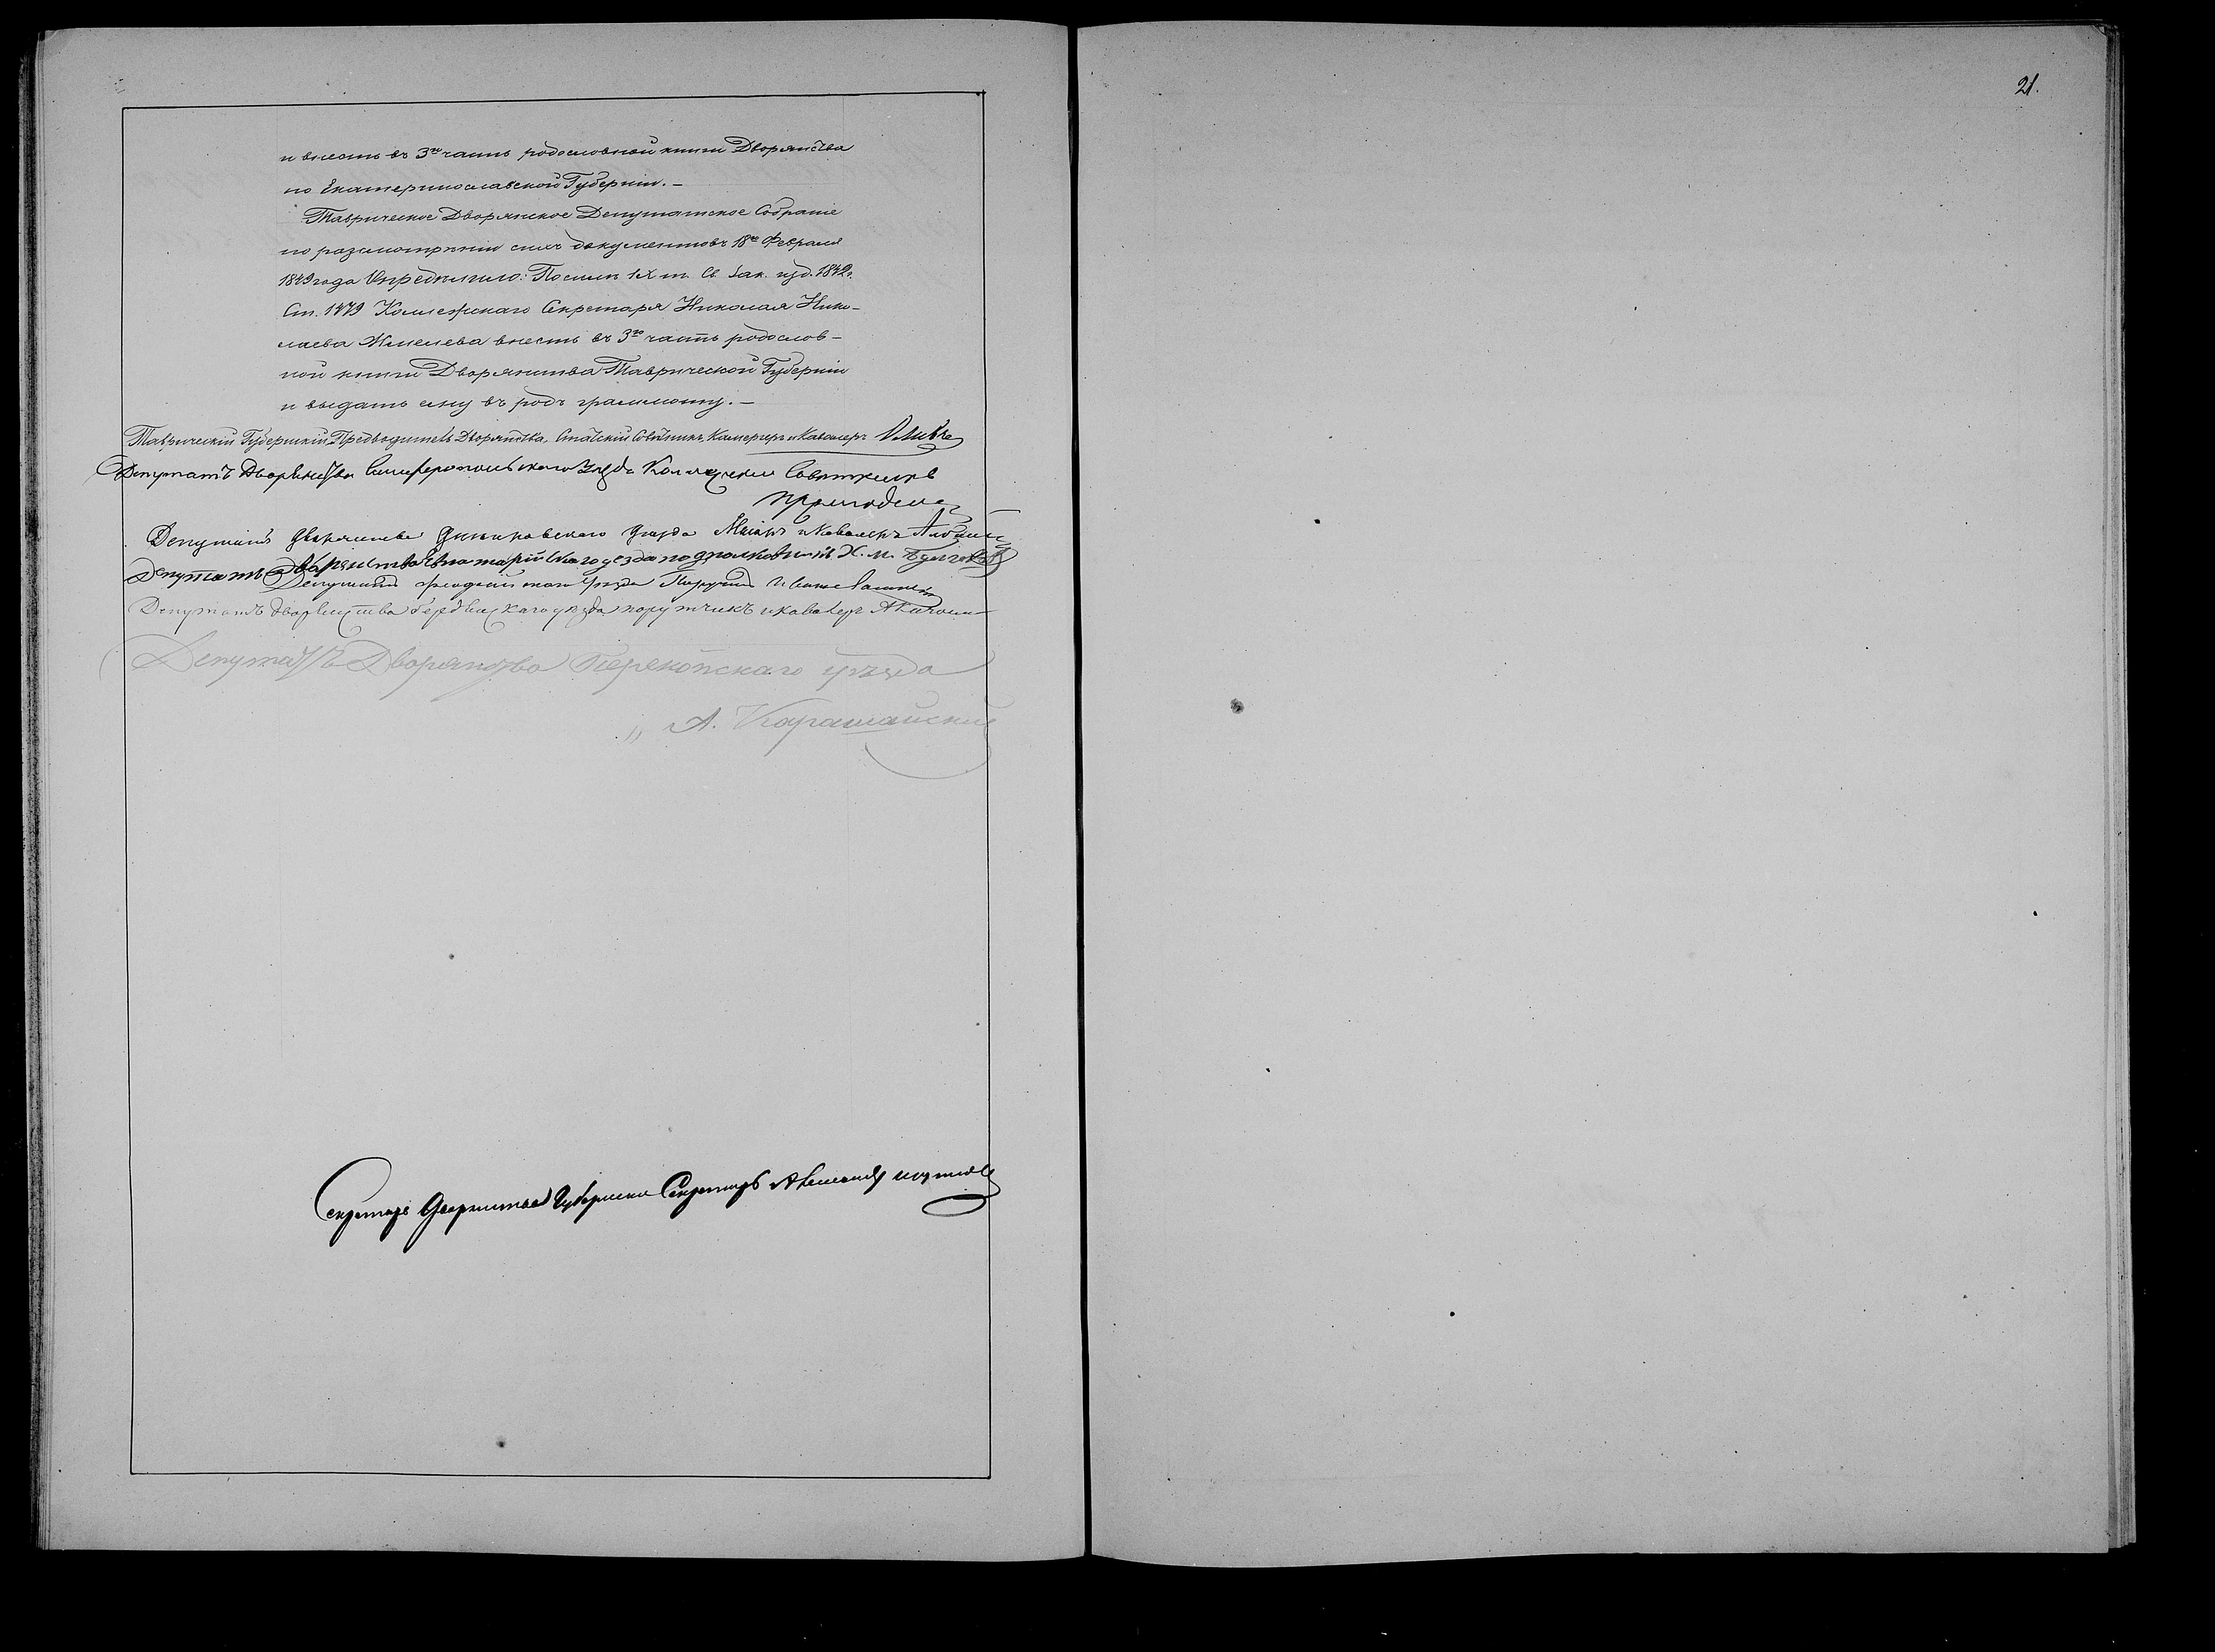 и внесть въ 3ю часть родословной книги Дворянства
по Екатеринославской Губерніи. –
Таврическое Дворянское Депутатское Собраніе
по разсмотрѣніи сихъ документовъ 18го Февраля
1849 года Опредѣлило: По силѣ IX т. Св. Зак. изд. 1842 г.
Ст. 1479 Коллежскаго Секретаря Николая Нико-
лаева внесть въ 3ю часть родослов-
ной книги Дворянства Таврической Губерніи
и выдать ему въ родъ граммоту. –
Таврическій Губернскій Предводитель Дворянства, Статскій Совѣтникъ, Камергеръ и Кавалеръ
Депутатъ Дворянства Симферопольскаго Уезда Коллежскій Совѣтникъ
Депутатъ дворянства Днѣпровскаго уѣзда Маіоръ и Кавалеръ
Депутатъ дворянства Евпаторійскаго уезда подполковникъ Х. М.
Депутатъ Феодосійскаго уѣзда Поручикъ
Депутатъ дворянства Бердянскаго уѣзда порутчикъ и кавалеръ
Депутатъ Дворянства Перекопскаго уѣзда
А. Карашайскій
Секретарь Дворянства Губернскій Секретарь
21.